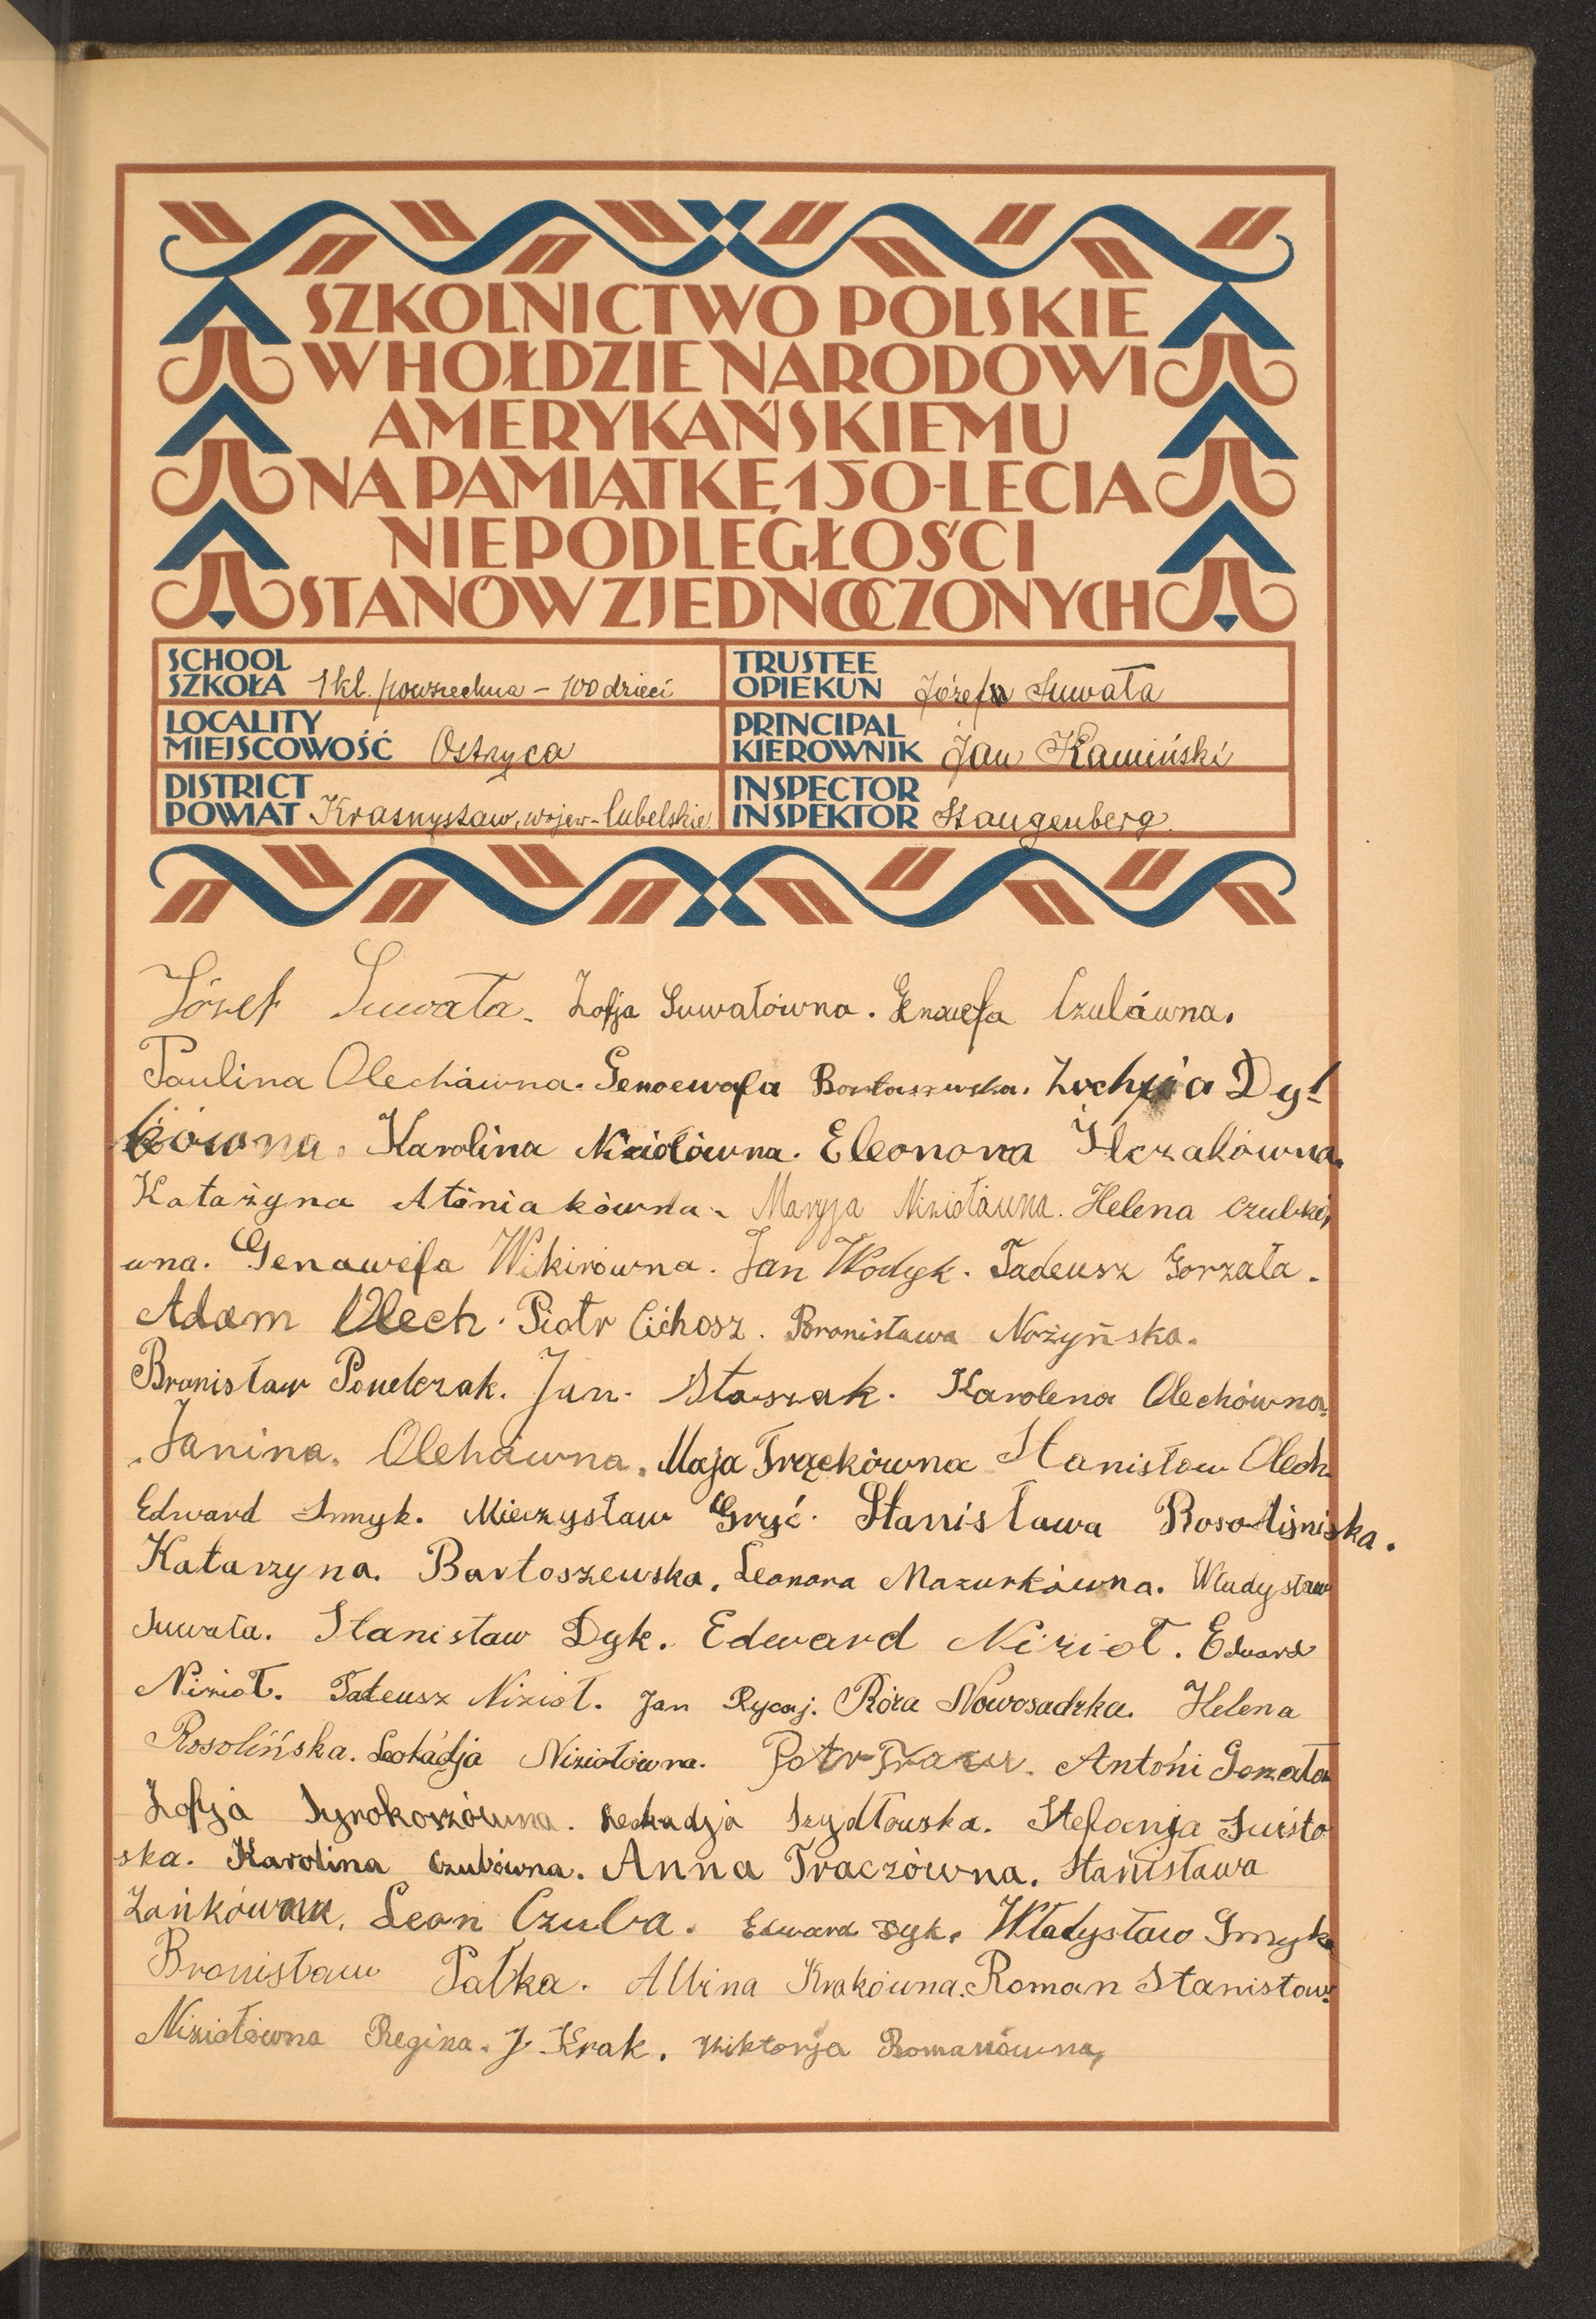 SZKOLNICTWO POLSKIE
W HOŁDZIE NARODOWI
AMERYKAŃSKIEMU
NA PAMIĄTKĘ 150-LECIA
NIEPODLEGŁOŚCI
STANÓW ZJEDNOCZONYCH
SCHOOL
SZKOŁA 1 kl. powszechna - 100 dzieci
TRUSTEE
OPIEKUN Józef Suwała
LOCALITY
MIEJSCOWOŚĆ Ostrzyca
PRINCIPAL
KIEROWNIK Jan Kamiński
DISTRICT
POWIAT Krasnystaw, wojew-lubelskie
INSPECTOR
INSPEKTOR Stangenberg.
Józef Suwała. Zofja Suwałówna. Czubówna.
Paulina Olechówna. Genoewafa Bartaszewska. Dy!
kówna. Karolina Niziołówna. Eleonora
Katażyna Maryja Niziołówna. Helena Czubó,
wna. Genawefa Wikirówna. Jan Wodyk. Tadeusz Gorzała.
Adam Olech. Piotr Cichosz. Bronisława Nożyńska.
Bronisław Jan. Staszak. Karolena Olechówna.
Janina. Olehówna. Maja Trąckówna Stanisław Olech
Edward Smyk. Mieczysław Gryć. Stanisława
Katarzyna. Bartoszewska. Leonora Mazurkówna. Władysław
Suwała. Stanisław Dyk. Edward Nizioł. Edward
Nizioł. Tadeusz Nizioł. Jan Rycaj. Róża Nowosadzka. Helena
Rosolińska. Leokadja Niziołówna. Potr Antoni Gorzała
Zofja Syrokoszówna. Szydłowska. Stefanja Swisto
ska. Karolina Czubówna. Anna Traczówna. Stanisława
Zańkówna. Leon Czuba. Edward Dyk. Władysław Smyk
Bronisław Pałka. Albina Krakówna. Roman Stanisław
Niziołówna Regina. J. Krak. Wiktorja Romanówna,